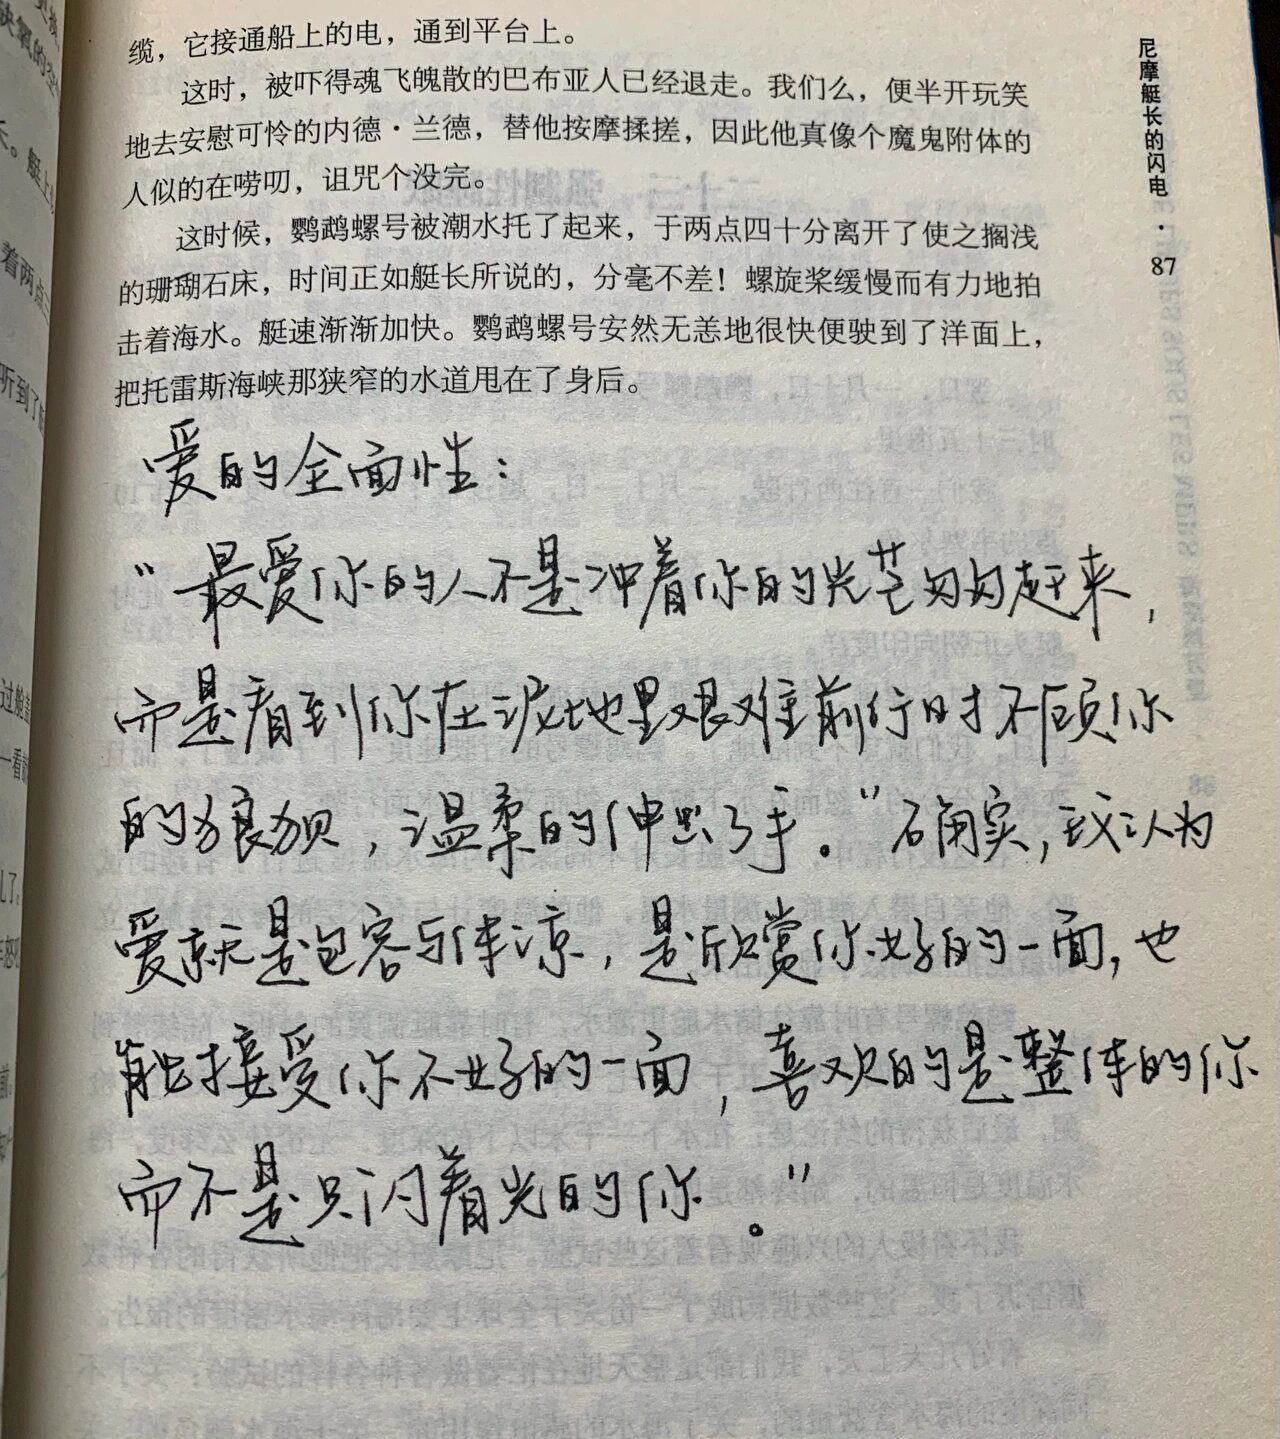 缆，它接通船上的电，通到平台上。
这时，被吓得魂飞魄散的巴布亚人已经退走。我们么，便半开玩笑
地去安慰可怜的内德·兰德，替他按摩揉搓，因此他真像个魔鬼附体的
人似的在唠叨，诅咒个没完。
这时候，鹦鹉螺号被潮水托了起来，于两点四十分离开了使之搁浅
的珊瑚石床，时间正如艇长所说的，分毫不差！螺旋桨缓慢而有力地拍
击着海水。艇速渐渐加快。鹦鹉螺号安然无恙地很快便驶到了洋面上，
把托雷斯海峡那狭窄的水道甩在了身后。
爱的全面性：
“最爱你的人不是冲着你的光芒匆匆赶来，
而是看到你在泥地里艰难前行时不顾你
的狼狈，温柔的伸出了手。”确实，我认为
爱就是包容与体凉，是欣赏你好的一面，也
能接受你不好的一面，喜欢的是整体的你
而不是只闪着光的你。”
尼摩艇长的闪电·
87